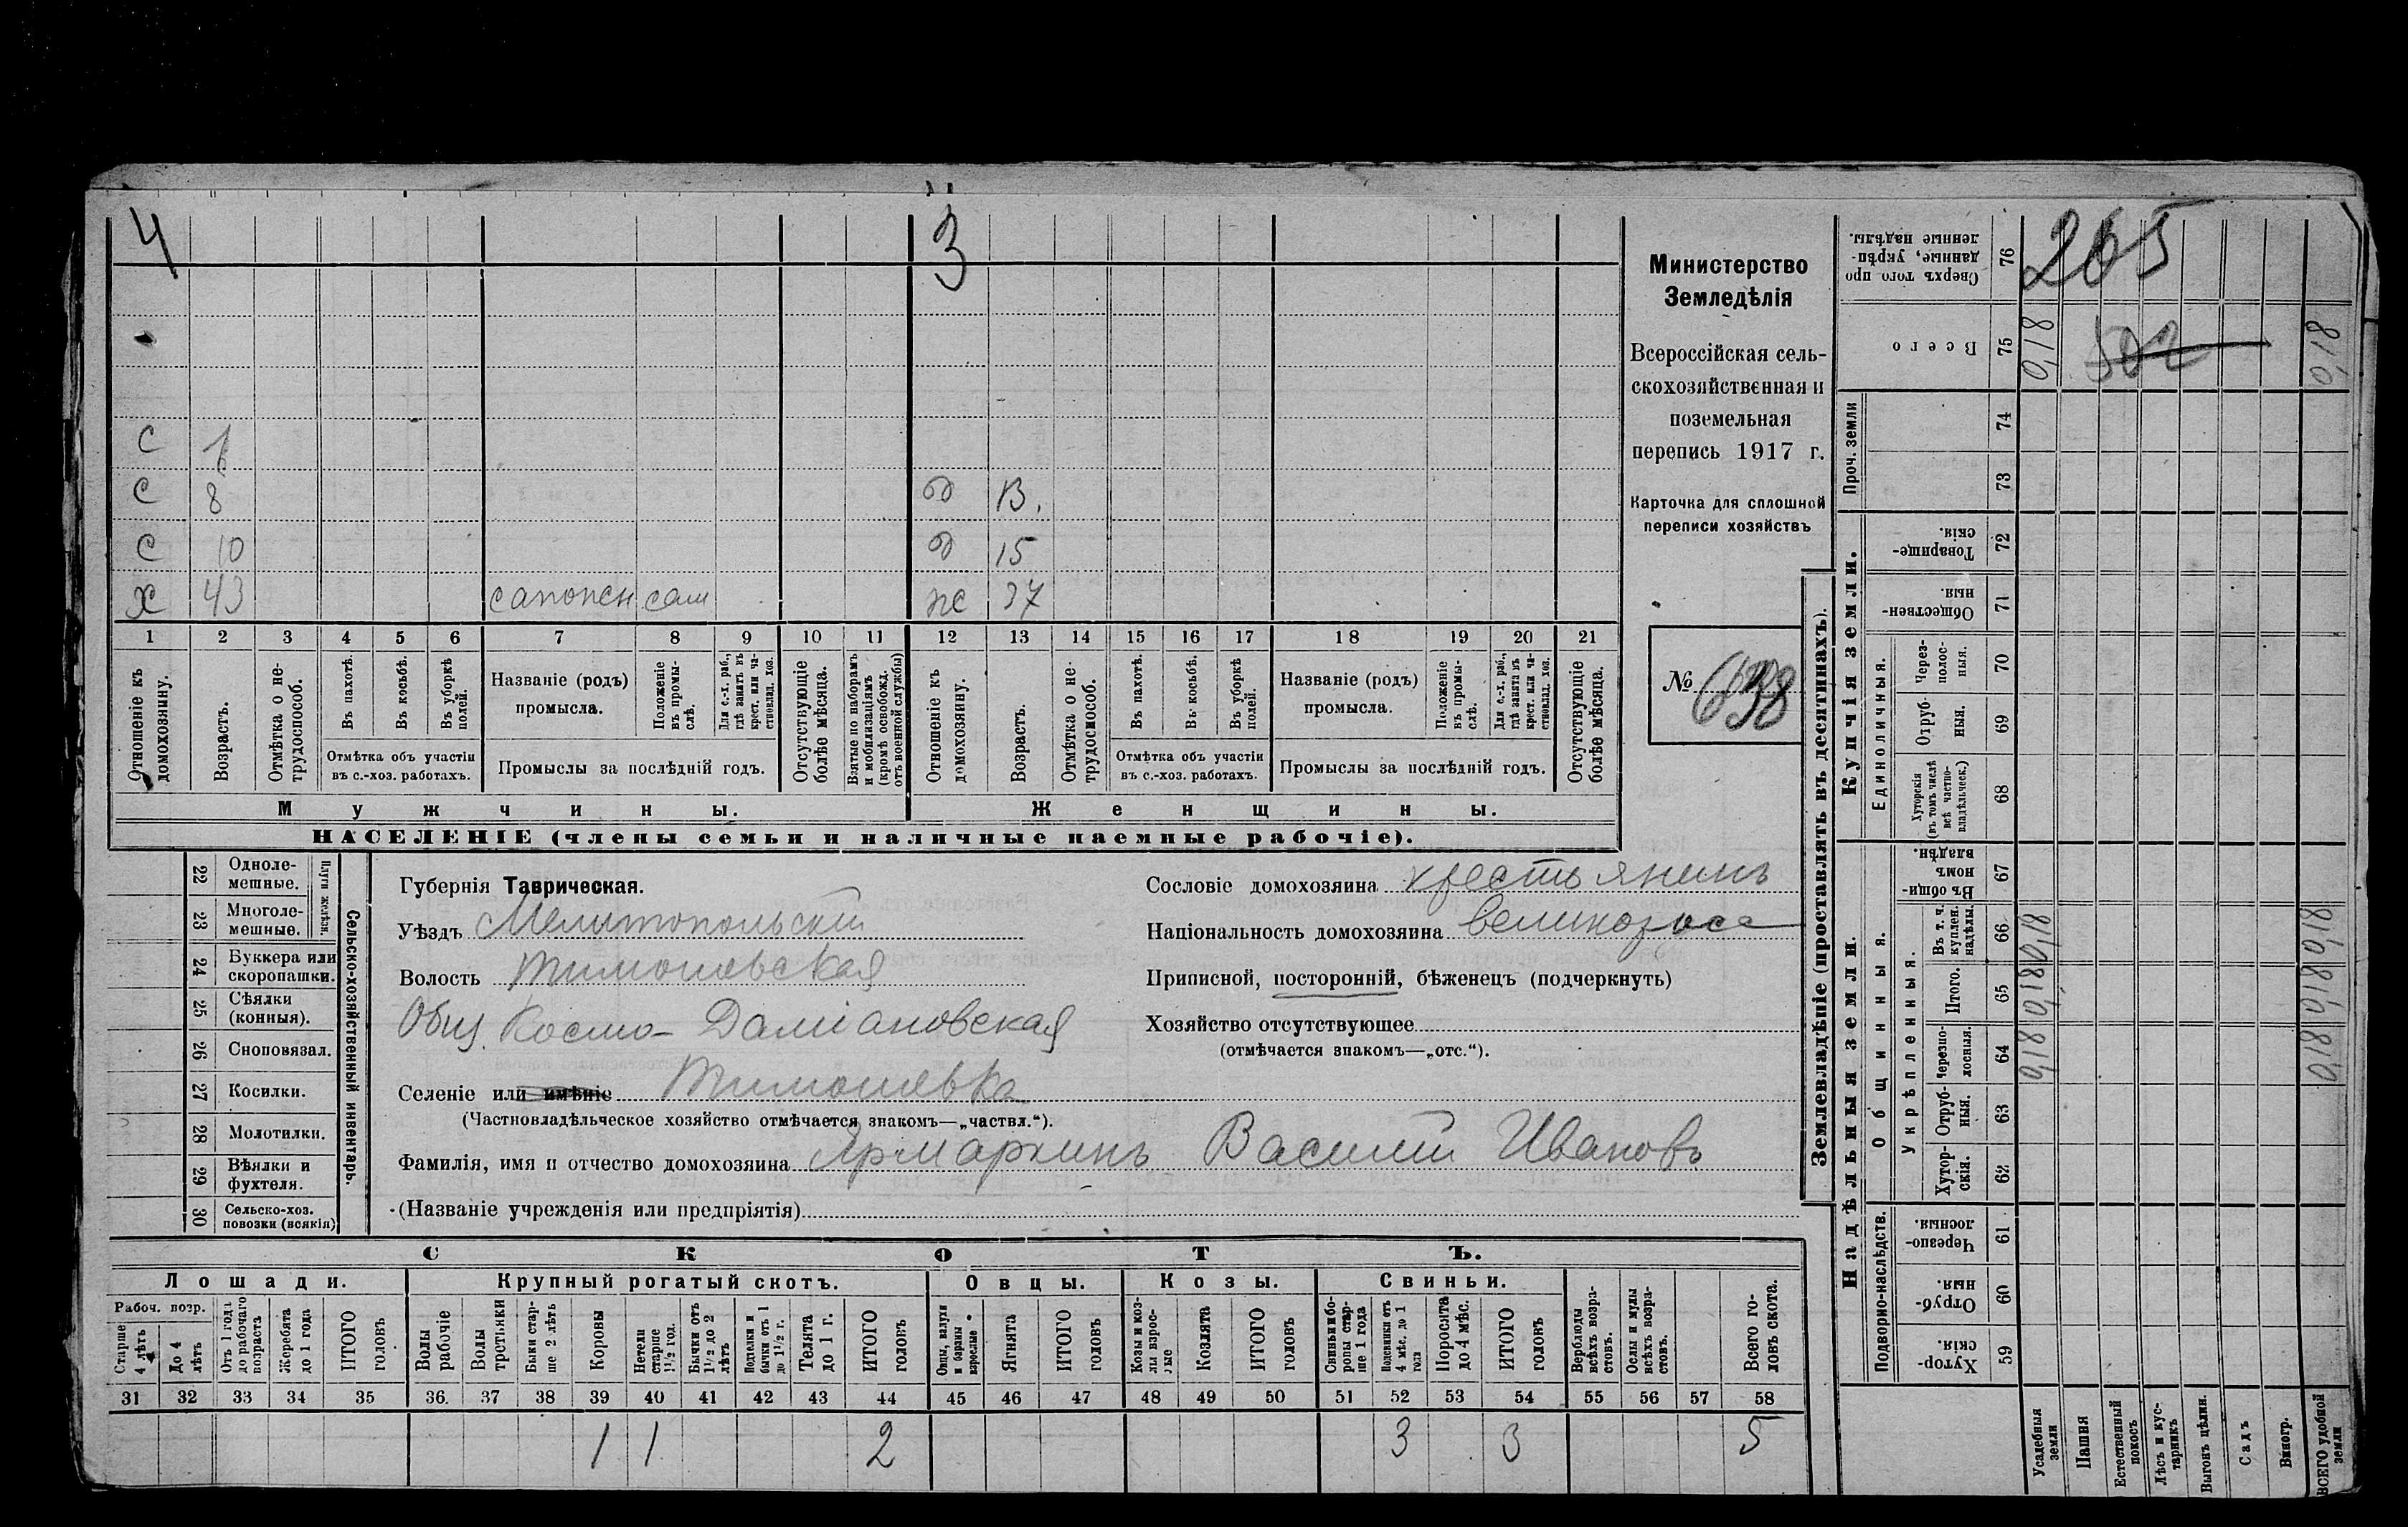 4 3
С 1
С 8 д 13.
С 10 д 15
Х 43 сапожн сам ж 37
1 2 3 4 5 6 7 8 9 10 11 12 13 14 15 16 17 18 19 20 21
Отношеніе къ домохозяину.
Возрастъ.
Отмѣтка о не-
трудоспособ.
Въ пахотѣ.
Въ косьбѣ.
Въ уборкѣ
полей.
Отмѣтка объ участіи
въ с.-хоз. работахъ.
Названіе (родъ)
промысла.
Положеніе
въ промы-
слѣ.
Для с.-х. раб.,
гдѣ занятъ въ
крест. или ча-
стновлад. хоз.
Промыслы за послѣдній годъ.
Отсутствующіе
болѣе мѣсяца.
Взятые по наборамъ
и мобилизаціямъ
(кромѣ освобожд.
отъ военной службы)
Отношеніе къ
домохозяину.
Возрастъ.
Отмѣтка о не-
трудоспособ.
Въ пахотѣ.
Въ косьбѣ.
Въ уборкѣ
полей.
Отмѣтка объ участіи
въ с.-хоз. работахъ.
Названіе (родъ)
промысла.
Положеніе
въ промы-
слѣ.
Для с.-х. раб.,
гдѣ занята въ
крест. или ча-
стновлад. хоз.
Промыслы за послѣдній годъ.
Отсутствующіе
болѣе мѣсяца.
Мужчины. Женщины.
НАСЕЛЕНІЕ (члены семьи и наличные наемные рабочіе).
Министерство
Земледѣлія
Всероссійская сель-
скохозяйственная и
поземельная
перепись 1917 г.
Карточка для сплошной
переписи хозяйствъ
№ 638
22 Одноле-
мешные.
23 Многоле-
мешные.
Плуги желѣзн.
24 Буккера или
скоропашки.
25 Сѣялки
(конныя).
26 Сноповязал.
27 Косилки.
28 Молотилки.
29 Вѣялки и
фухтеля.
30 Сельско-хоз.
повозки (всякія)
Сельско-хозяйственный инвентарь.
Губернія Таврическая.
Уѣздъ Мелитопольскій
Волость Тимошевская
Общ. Космо-Даміановская
Селеніе или имѣніе Тимошевка
(Частновладѣльческое хозяйство отмѣчается знакомъ—„частвл.“).
Фамилія, имя и отчество домохозяина Ярмаркинъ Василій Ивановъ
(Названіе учрежденія или предпріятія)
Сословіе домохозяина крестьянинъ
Національность домохозяина великоросс
Приписной, посторонній, бѣженецъ (подчеркнуть)
Хозяйство отсутствующее
(отмѣчается знакомъ—„отс.“).
СКОТЪ.
Лошади. Крупный рогатый скотъ. Овцы. Козы. Свиньи.
Рабоч. возр.
Старше
4 лѣтъ
До 4
лѣтъ
Отъ 1 года
до рабочаго
возраста
Жеребята
до 1 года
ИТОГО
головъ
Волы
рабочіе
Волы
третьяки
Быки стар-
ше 2 лѣтъ
Коровы
Нетели
старше
1½ год.
Бычки отъ
1½ до 2
лѣтъ
Подтелки и
бычки отъ 1
до 1½ г.
Телята
до 1 г.
ИТОГО
головъ
Овцы, валухи
и бараны
взрослые
Ягнята
ИТОГО
головъ
Козы и коз-
лы взрос-
лые
Козлята
ИТОГО
головъ
Свиньи и бо-
ровы стар-
ше 1 года
Подсвинки отъ
4 мѣс. до 1
года
Поросята
до 4 мѣс.
ИТОГО
головъ
Верблюды
всѣхъ возра-
стовъ.
Ослы и мулы
всѣхъ возра-
стовъ.
Всего го-
ловъ скота.
31 32 33 34 35 36. 37 38 39 40 41 42 43 44 45 46 47 48 49 50 51 52 53 54 55 56 57 58
1 1 2 3 3 5
Землевладѣніе (проставлять въ десятинахъ).
265
502
Сверхъ того про
данные, укрѣп-
ленные надѣлы. 76
Всего 75 0,18 0,18
Проч. земли 74
73
Купчія земли.
Товарище-
скія. 72
Обществен-
ныя. 71
Единоличныя.
Через-
полос-
ныя. 70
Отруб-
ныя. 69
Хуторскія
(въ томъ числѣ
всѣ частно-
владѣльческ.) 68
Надѣльныя земли.
Общинныя.
Въ общи-
номъ
владѣн. 67
Укрѣпленныя.
Въ т. ч.
куплен.
надѣлы. 66 0,18 0,18
Итого. 65 0,18 0,18
Черезпо-
лосныя. 64 0,18 0,18
Отруб-
ныя. 63
Хутор-
скія. 62
Подворно-наслѣдств.
Черезпо-
лосныя. 61
Отруб-
ныя. 60
Хутор-
скія. 59
Усадебныя
земли
Пашня
Естественный
покосъ
Лѣсъ и кус-
тарникъ
Выгонъ цѣлин.
Садъ
Виногр.
ВСЕГО удобной
земли